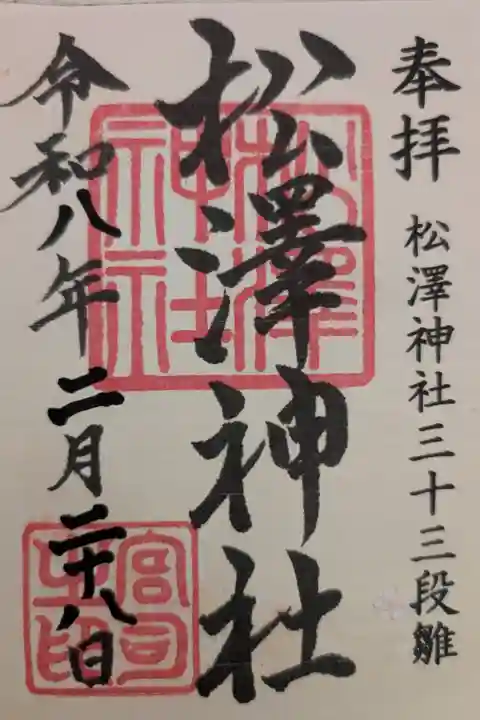 奉拝 松澤神社三十三段雛
松澤神社
令和八年二月二十八日
松澤神社
宮司之印